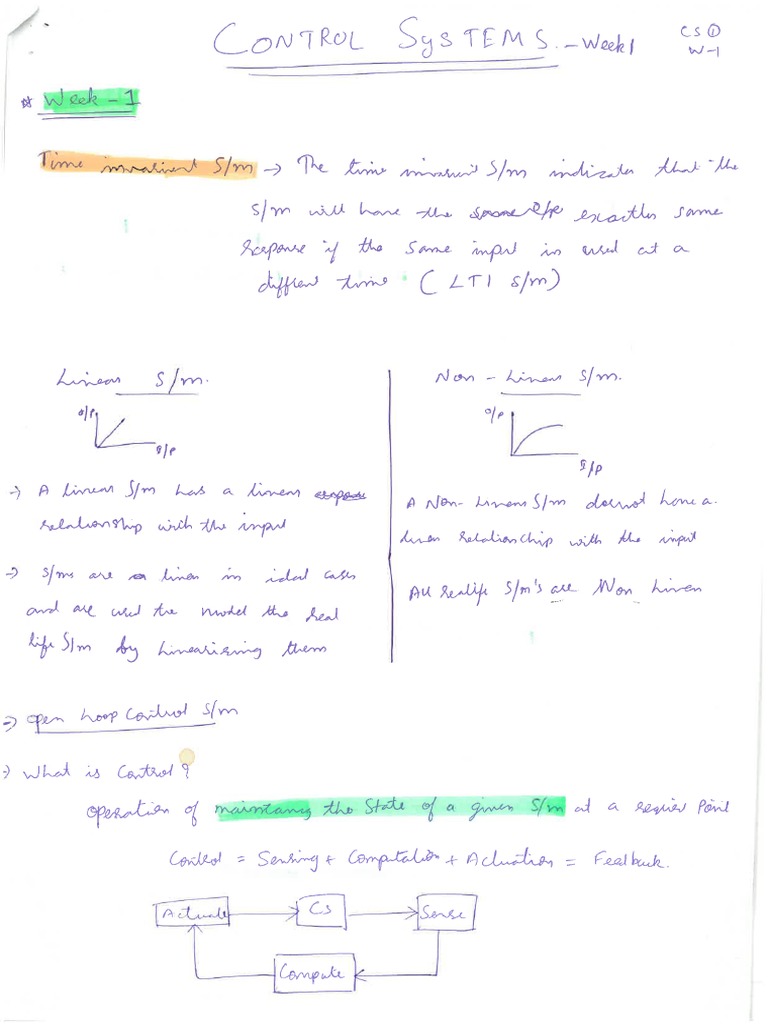 CONTROL SYSTEMS. - Week 1
CS ①
W-1
* Week - 1
Time invarient S/m → The time invarient S/m indicates that the
S/m will have the exactles same
response if the same input is used at a
diffrent time (LTI S/m)
Linear S/m.
O/P
I/P
→ A linear S/m has a linear
relationship with the input
→ S/ms are linear in idal cases
and are used the model the real
life S/m by linearising them
Non - Linear S/m.
O/P
I/P
A Non-Linear S/m doesnot have a
linear relationship with the input
All realife S/m's are Non Linear
⇒ Open Loop Control S/m
→ What is Control?
Operation of maintaing the State of a given S/m at a requier Point
Control = Sensing + Computation + Actuation = Feedback.
Actuate
CS
Sense
Compute